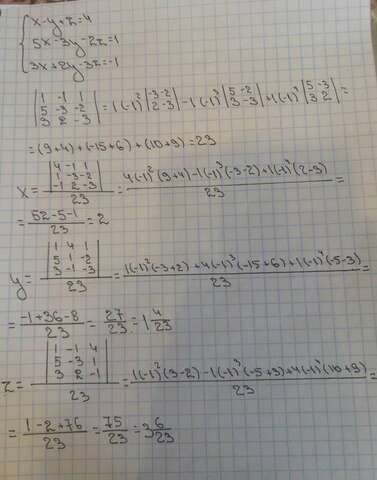 { x-y+z=4
5x-3y-2z=1
3x+2y-3z=-1
|1 -1 1; 5 -3 -2; 3 2 -3| = 1(-1)²|-3 -2; 2 -3| -1(-1)³|5 -2; 3 -3| +1(-1)⁴|5 -3; 3 2| =
=(9+4)+(-15+6)+(10+9)=23
x= |4 -1 1; 1 -3 -2; -1 2 -3| / 23 = 4(-1)²(9+4)-1(-1)³(-3-2)+1(-1)⁴(2-3) / 23 =
= 52-5-1 / 23 = 2
y= |1 4 1; 5 1 -2; 3 -1 -3| / 23 = 1(-1)²(-3+2)+4(-1)³(-15+6)+1(-1)⁴(-5-3) / 23 =
= -1+36-8 / 23 = 27/23 = 1 4/23
z= |1 -1 4; 5 -3 1; 3 2 -1| / 23 = 1(-1)²(3-2)-1(-1)³(-5+3)+4(-1)⁴(10+9) / 23 =
= 1-2+76 / 23 = 75/23 = 3 6/23